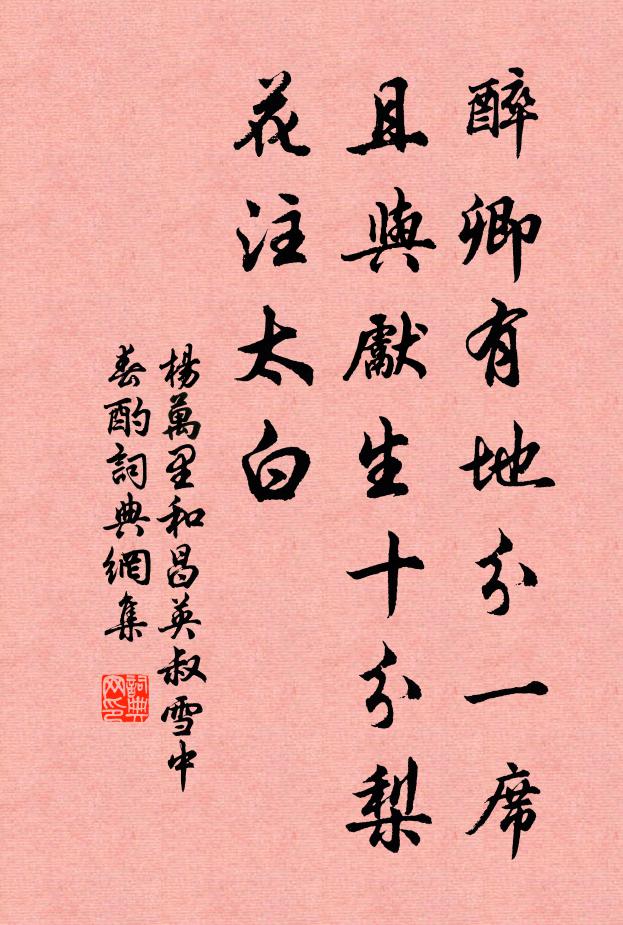 醉卿有地分一席
且與獻生十分梨
花注太白
楊萬里和昌英叔雪中
春酌詞典網集
詞典
网印